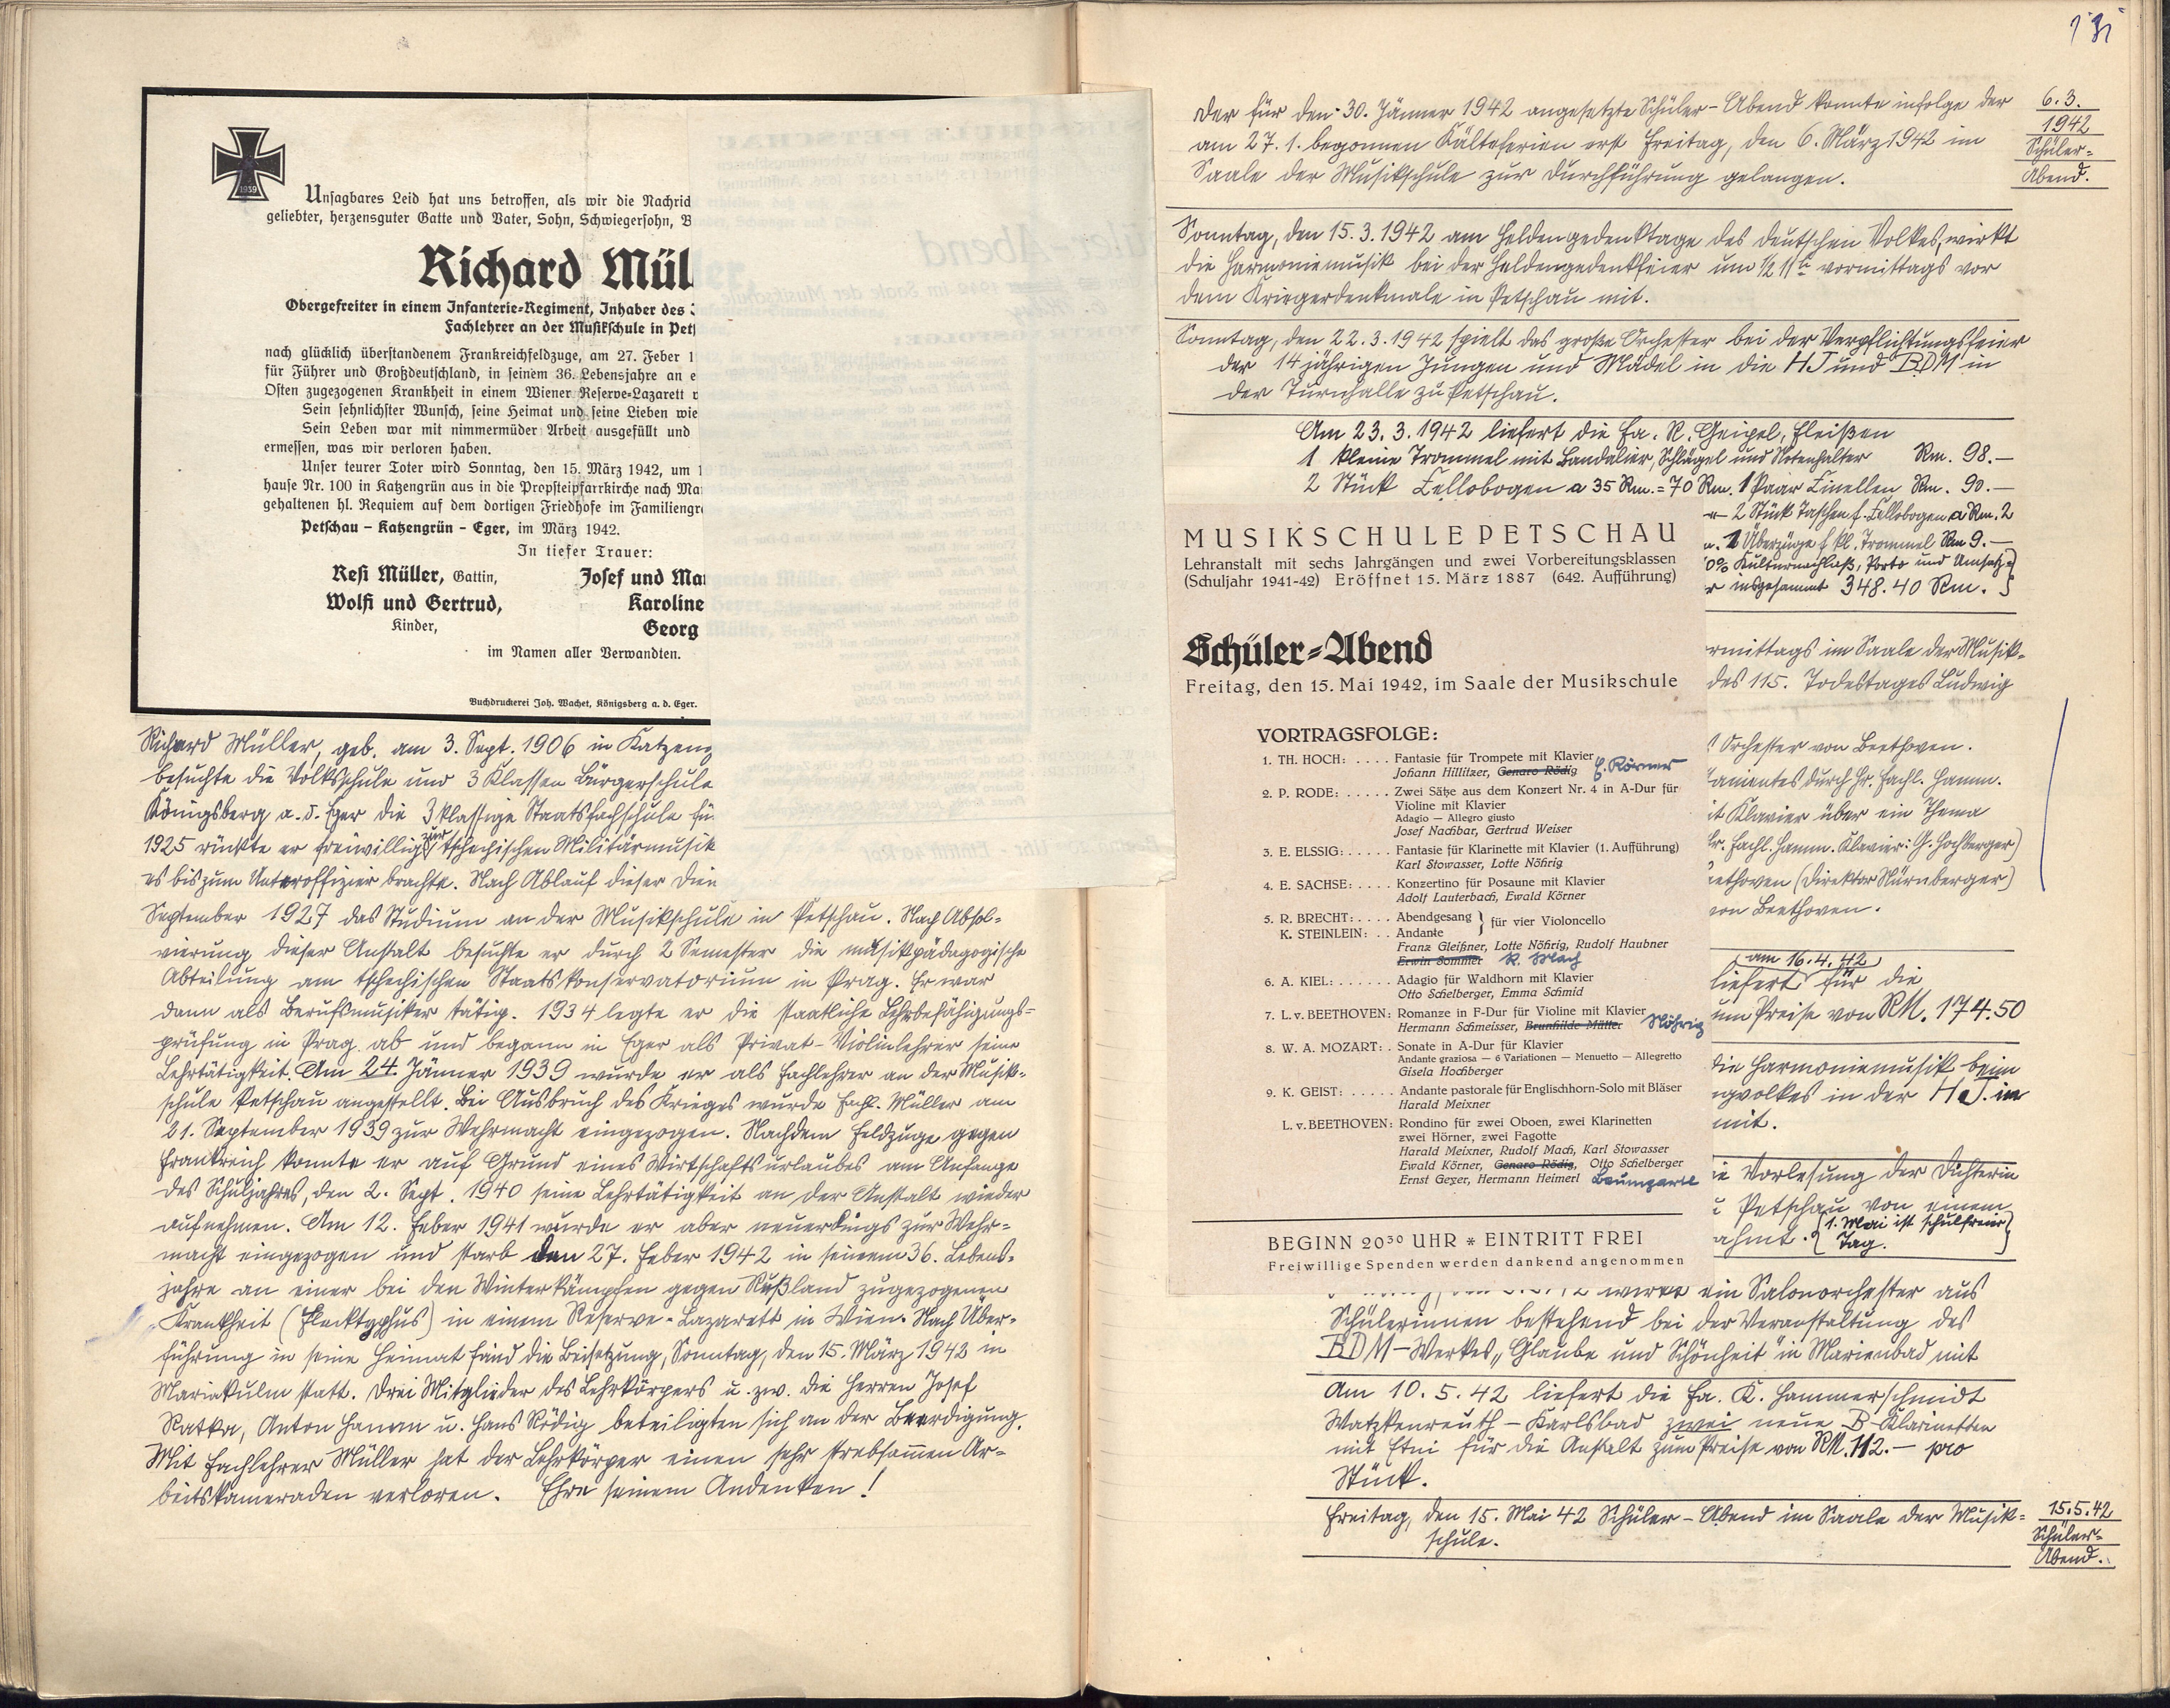 1939
Unsagbares Leid hat uns betroffen, als wir die Nachrid
geliebter, herzensguter Gatte und Vater, Sohn, Schwiegersohn, B
Richard Mül
Obergefreiter in einem Infanterie-Regiment, Inhaber des
Fachlehrer an der Musikschule in Pet
nach glücklich überstandenem Frankreichfeldzuge, am 27. Feber 1
für Führer und Großdeutschland, in seinem 36. Lebensjahre an e
Osten zugezogenen Krankheit in einem Wiener Reserve-Lazarett
Sein sehnlichster Wunsch, seine Heimat und seine Lieben wie
Sein Leben war mit nimmermüder Arbeit ausgefüllt und
ermessen, was wir verloren haben.
Unser teurer Toter wird Sonntag, den 15. März 1942, um 1
hause Nr. 100 in Katzengrün aus in die Propsteipfarrkirche nach Ma
gehaltenen hl. Requiem auf dem dortigen Friedhofe im Familiengr
Petschau – Katzengrün – Eger, im März 1942.
In tiefer Trauer:
Resi Müller, Gattin, Josef und Ma
Wolfi und Gertrud, Karoline
Kinder, Georg
im Namen aller Verwandten.
Buchdruckerei Joh. Wachet, Königsberg a. d. Eger.
Richard Müller, geb. am 3. Sept. 1906 in Katzeng
besuchte die Volksschule und 3 Klassen Bürgerschule
Königsberg a. d. Eger die 3 klassige Staatsfachschule fü
1925 rückte er freiwillig zur tschechischen Militärmusik
es bis zum Unteroffizier brachte. Nach Ablauf dieser Dien
September 1927 das Studium an der Musikschule in Petschau. Nach Absol-
vierung dieser Anstalt besuchte er durch 2 Semester die musikpädagogische
Abteilung am tschechischen Staatskonservatorium in Prag. Er war
dann als Berufsmusiker tätig. 1934 legte er die staatliche Lehrbefähigungs-
prüfung in Prag ab und begann in Eger als Privat-Violinlehrer seine
Lehrtätigkeit. Am 24. Jänner 1939 wurde er als Fachlehrer an der Musik-
schule Petschau angestellt. Bei Ausbruch des Krieges wurde Fachl. Müller am
21. September 1939 zur Wehrmacht eingezogen. Nach dem Feldzuge gegen
Frankreich konnte er auf Grund eines Wirtschaftsurlaubes am Anfange
des Schuljahres, den 2. Sept. 1940 seine Lehrtätigkeit an der Anstalt wieder
aufnehmen. Am 12. Feber 1941 wurde er aber neuerdings zur Wehr-
macht eingezogen und starb den 27. Feber 1942 in seinem 36. Lebens-
jahre an einer bei den Winterkämpfen gegen Rußland zugezogenen
Krankheit (Flecktyphus) in einem Reserve-Lazarett in Wien. Nach Über-
führung in seine Heimat fand die Beisetzung, Sonntag, den 15. März 1942 in
Mariakulm statt. Drei Mitglieder des Lehrkörpers u. zw. die Herren Josef
Ratka, Anton Hamm u. Hans Rödig beteiligten sich an der Beerdigung.
Mit Fachlehrer Müller hat der Lehrkörper einen sehr strebsamen Ar-
beitskameraden verloren. Ehre seinem Andenken!
131
Der für den 30. Jänner 1942 angesetzte Schüler-Abend konnte infolge der
am 27. 1. begonnen Kälteferien erst Freitag, den 6. März 1942 im
Saale der Musikschule zur Durchführung gelangen.
6. 3.
1942
Schüler-
Abend.
Sonntag, den 15. 3. 1942 am Heldengedenktage des deutschen Volkes, wirkt
die Harmoniemusik bei der Heldengedenkfeier um ½ 11h vormittags vor
dem Kriegerdenkmale in Petschau mit.
Sonntag, den 22. 3. 1942 spielt das große Orchester bei der Verpflichtungsfeier
der 14 jährigen Jungen und Mädel in die HJ und BDM in
der Turnhalle zu Petschau.
Am 23. 3. 1942 liefert die Fa. R. Geipel, Fleißen
1 kleine Trommel mit Bandalier, Schlägel und Notenhalter Rm. 98.—
2 Stück Cellobogen a 35 Rm. = 70 Rm. 1 Paar Zinellen Rm. 90.—
2 Stück Taschen f. Cellobogen a Rm. 2
Überzüge f. kl. Trommel Rm 9.—
0% Kulturnachlaß, Porto und Umsatz
insgesammt 348.40 Rm.
MUSIKSCHULE PETSCHAU
Lehranstalt mit sechs Jahrgängen und zwei Vorbereitungsklassen
(Schuljahr 1941-42) Eröffnet 15. März 1887 (642. Aufführung)
Schüler-Abend
Freitag, den 15. Mai 1942, im Saale der Musikschule
VORTRAGSFOLGE:
1. TH. HOCH: .... Fantasie für Trompete mit Klavier
Johann Hillitzer, Genaro Rödig E. Körner
2. P. RODE: ..... Zwei Sätze aus dem Konzert Nr. 4 in A-Dur für
Violine mit Klavier
Adagio — Allegro giusto
Josef Nachbar, Gertrud Weiser
3. E. ELSSIG: ..... Fantasie für Klarinette mit Klavier (1. Aufführung)
Karl Stowasser, Lotte Nöhrig
4. E. SACHSE: .... Konzertino für Posaune mit Klavier
Adolf Lauterbach, Ewald Körner
5. R. BRECHT: .... Abendgesang } für vier Violoncello
K. STEINLEIN: .. Andante
Franz Gleißner, Lotte Nöhrig, Rudolf Haubner
Erwin Sommer R. Mach
6. A. KIEL: ...... Adagio für Waldhorn mit Klavier
Otto Schelberger, Emma Schmid
7. L. v. BEETHOVEN: Romanze in F-Dur für Violine mit Klavier
Hermann Schmeisser, Brunhilde Mätter Nöhrig
8. W. A. MOZART: . Sonate in A-Dur für Klavier
Andante graziosa — 6 Variationen — Menuetto — Allegretto
Gisela Hochberger
9. K. GEIST: ..... Andante pastorale für Englischhorn-Solo mit Bläser
Harald Meixner
L. v. BEETHOVEN: Rondino für zwei Oboen, zwei Klarinetten
zwei Hörner, zwei Fagotte
Harald Meixner, Rudolf Mach, Karl Stowasser
Ewald Körner, Genaro Rödig, Otto Schelberger
Ernst Geyer, Hermann Heimerl Baumgartl
BEGINN 20³⁰ UHR * EINTRITT FREI
Freiwillige Spenden werden dankend angenommen
rmittags im Saale der Musik-
des 115. Todestages Ludwig
Orchester von Beethoven.
tamentes durch Hr. Fachl. Hamm.
it Klavier über ein Thema
Hr. Fachl. Hamm. Klavier: G. Hochberger)
eethoven (Direktor Nürnberger)
von Beethoven.
am 16. 4. 42
liefert für die
um Preise von RM. 174.50
die Harmoniemusik beim
ngvolkes in der HJ. in
mit.
ie Vorlesung der Dichterin
Petschau von einem
ahmt. {1. Mai ist schulfreier
Tag.}
wirkt ein Salonorchester aus
Schülerinnen bestehend bei der Veranstaltung des
BDM-Werkes „Glaube und Schönheit" in Marienbad mit
Am 10. 5. 42 liefert die Fa. K. Hammerschmidt
Watzkenreuth – Karlsbad zwei neue B-Klarinetten
mit Etui für die Anstalt zum Preise von RM. 112.— pro
Stück.
Freitag, den 15. Mai 42 Schüler-Abend im Saale der Musik-
schule.
15. 5. 42
Schüler-
Abend.